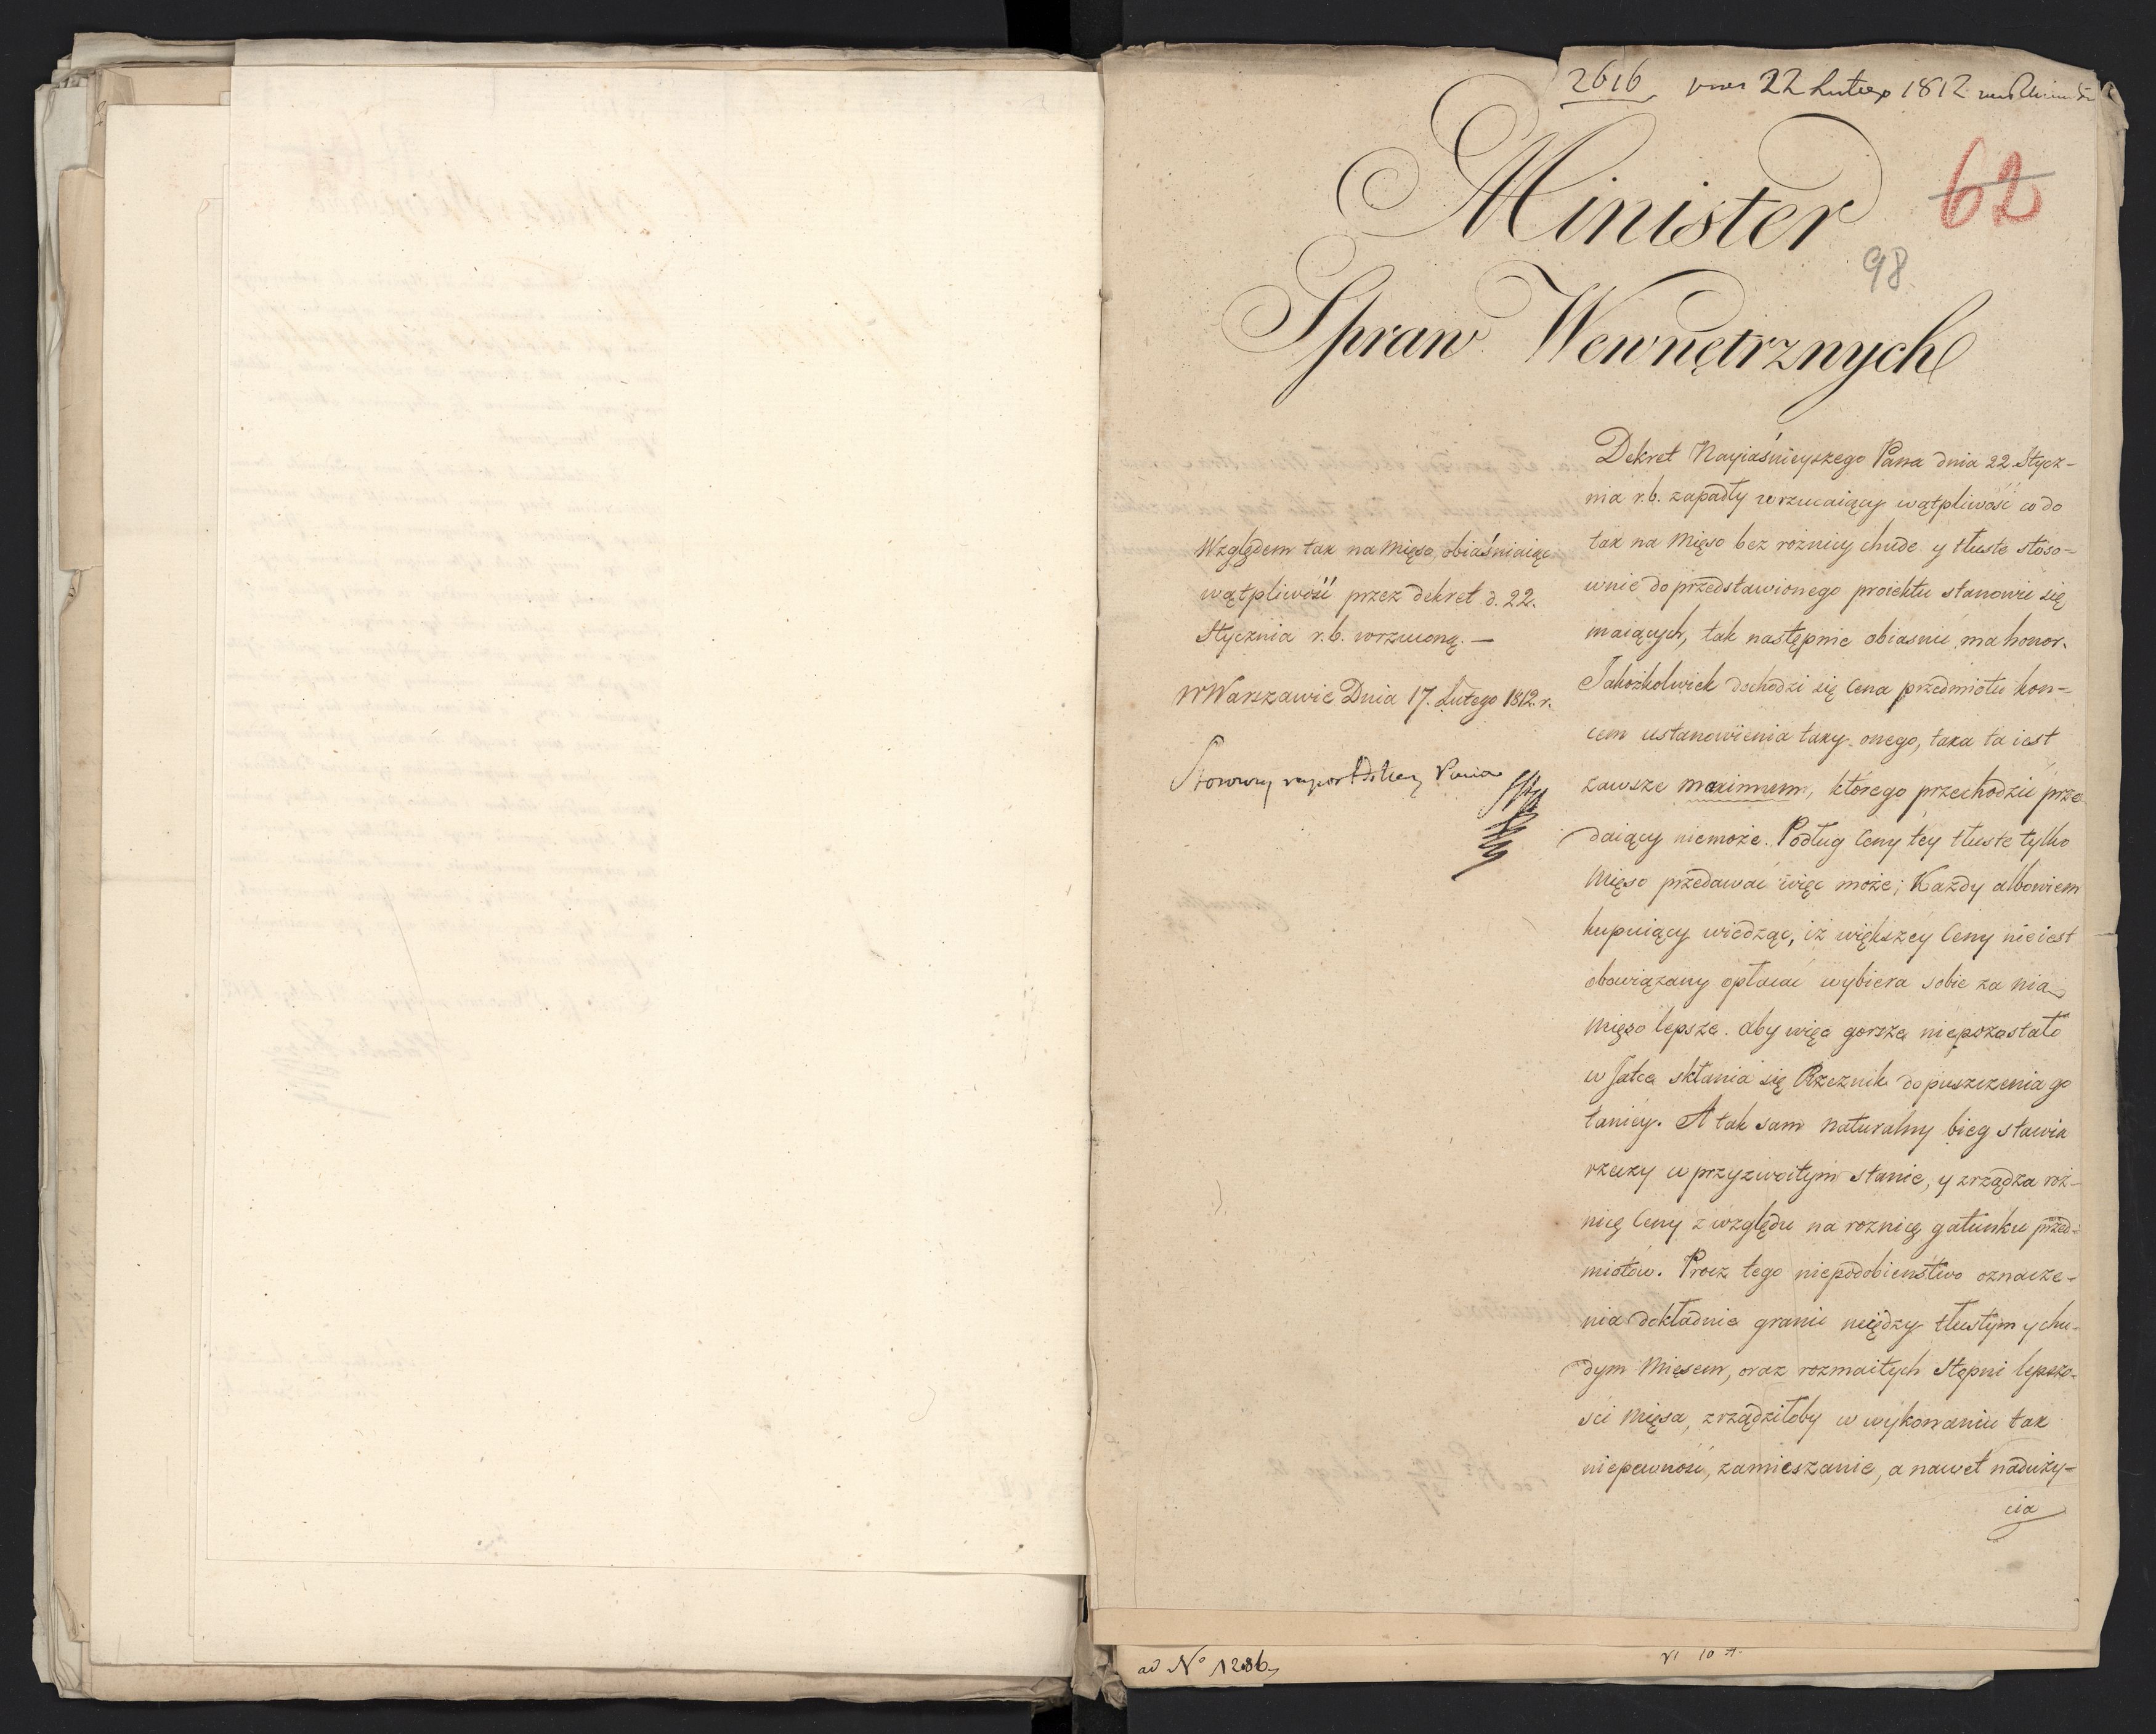 2616 22 Lutego 1812
Minister
62
98
Spraw Wewnętrznych
Względem tax na Mięso, obiaśniaiąc
wątpliwość przez dekret d. 22.
Stycznia r.b. wrzuconą. —
W Warszawie Dnia 17. Lutego 1812. r.
Dekret Nayiaśnieyszego Pana dnia 22 Stycz-
nia r.b. zapadły wrzucaiący wątpliwość co do
tax na Mięso bez roznicy chude y tłuste stoso-
wnie do przedstawionego proiektu stanowić się
maiących, tak następnie obiasnić ma honor.
Jakożkolwiek dochodzi się Cena przedmiotu koń-
cem ustanowienia taxy onego, taxa ta iest
zawsze maximum, którego przechodzić prze-
daiący niemoże. Podług Ceny tey tłuste tylko
Mięso przedawać więc może; Każdy albowiem
kupuiący wiedząc, iż większey Ceny nie iest
obowiązany opłacać wybiera sobie za nią
Mięso lepsze. Aby więc gorsze niepozostało
w Jatce skłania się Rzeznik do puszczenia go
taniey. A tak sam naturalny bieg stawia
rzeczy w przyzwoitym stanie, y zrządza róż-
nicę Ceny z względu na roznicę gatunku przed-
miotów. Procz tego niepodobieństwo oznacze-
nia dokładnie granic między tłustym y chu-
dym Mięsem, oraz rozmaitych Stopni lepszo-
ści Mięsa, zrządziłoby w wykonaniu tax
niepewność, zamieszanie, a nawet naduży-
cia
ad N° 1286